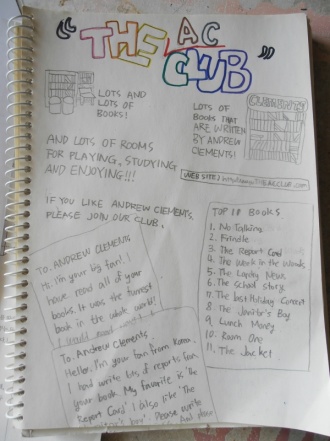 "THE AC
CLUB"
LOTS AND
LOTS OF
BOOKS!
LOTS OF
BOOKS THAT
ARE WRITTEN
BY ANDREW
CLEMENTS!
AND LOTS OF ROOMS
FOR PLAYING, STUDYING
AND ENJOYING!!!
WEB SITE)
IF YOU LIKE ANDREW CLEMENTS,
PLEASE JOIN OUR CLUB.
TOP 11 BOOKS
1. No Talking
2. Frindle
3. The Report Card
4. The Week in the Woods
5. The Landry News
6. The school story
7. The last Holiday Concert
8. The Janitor's Boy
9. Lunch Money
10. Room One
11. The Jacket
To. ANDREW CLEMENTS
Hi. I'm your big fan! I
have read all of your
books. It was the funniest
book in the whole world!
I would
To. Andrew Clements
Hello. I'm your fan from Korea.
I had write lots of reports from
your book. My favorite is 'The
Report Card' I also like 'The
boy'. Please write